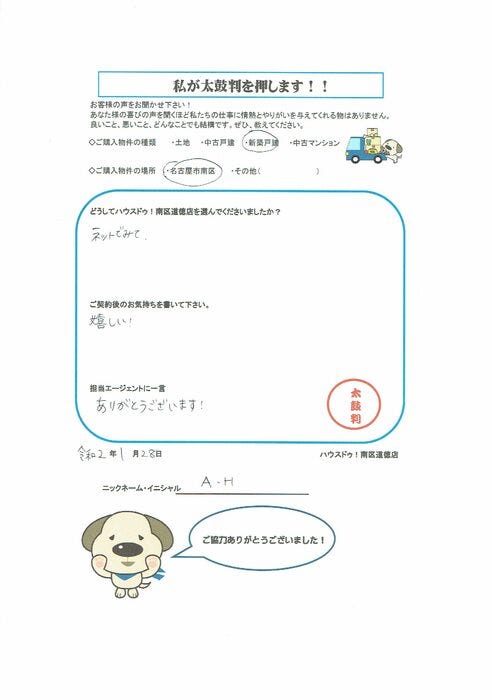 私が太鼓判を押します！！
お客様の声をお聞かせ下さい！
あなた様の喜びの声を聞くほど私たちの仕事に情熱とやりがいを与えてくれる物はありません。
良いこと、悪いこと、どんなことでも結構です。ぜひ、教えてください。
◇ご購入物件の種類　・土地　・中古戸建　・新築戸建　・中古マンション
◇ご購入物件の場所　・名古屋市南区　・その他（　　　　　　）
どうしてハウスドゥ！南区道徳店を選んでくださいましたか？
ネットでみて、
ご契約後のお気持ちを書いて下さい。
嬉しい！
担当エージェントに一言
ありがとうございます！
太鼓判
令和2年1月28日
ハウスドゥ！南区道徳店
ニックネーム・イニシャル　A・H
ご協力ありがとうございました！